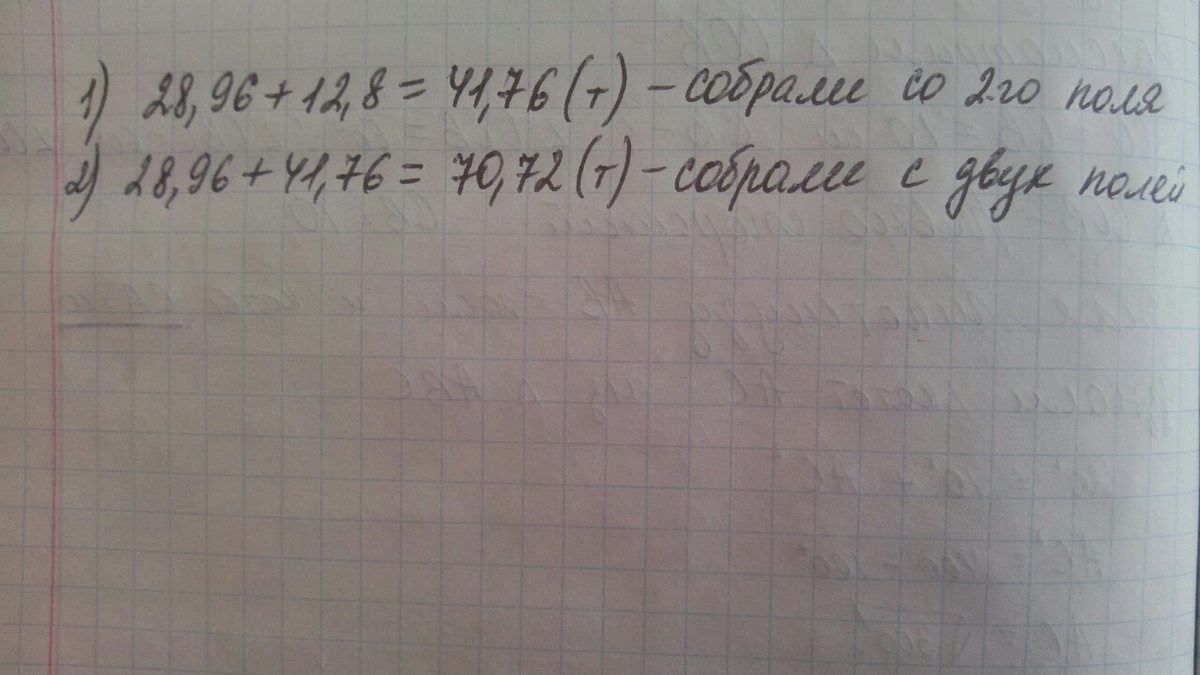 1) 28,96 + 12,8 = 41,76 (т) – собрали со 2-го поля
2) 28,96 + 41,76 = 70,72 (т) – собрали с двух полей